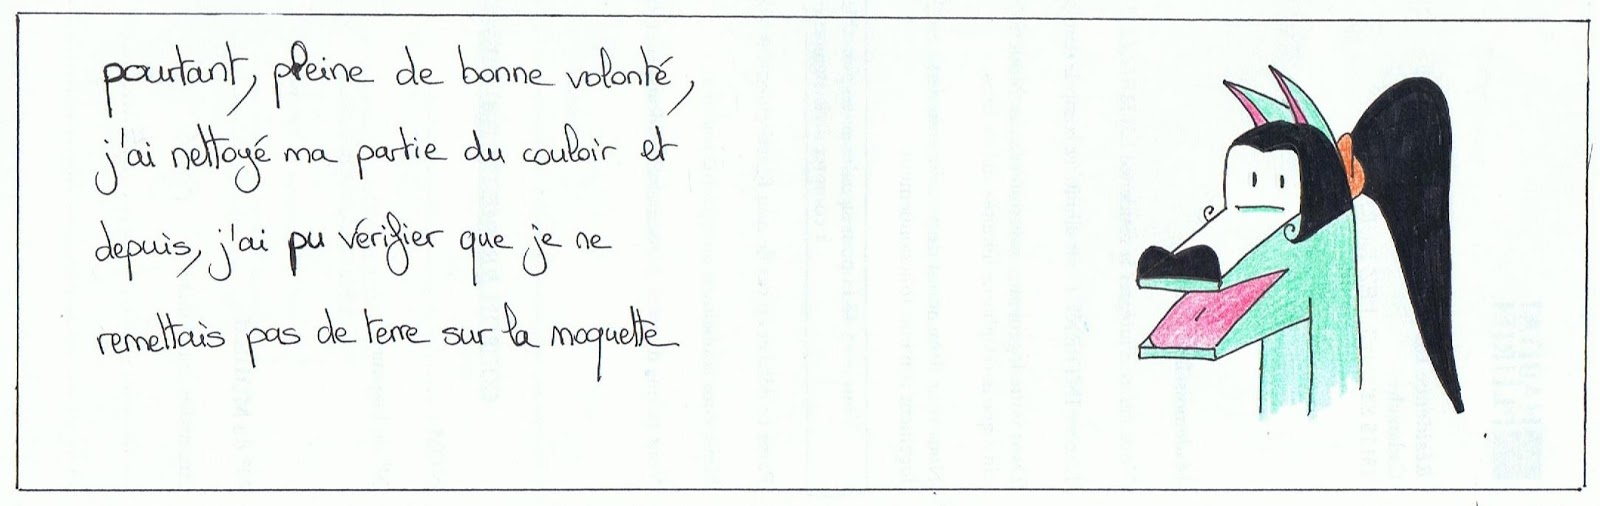 pourtant, pleine de bonne volonté,
j'ai nettoyé ma partie du couloir et
depuis, j'ai pu vérifier que je ne
remettais pas de terre sur la moquette